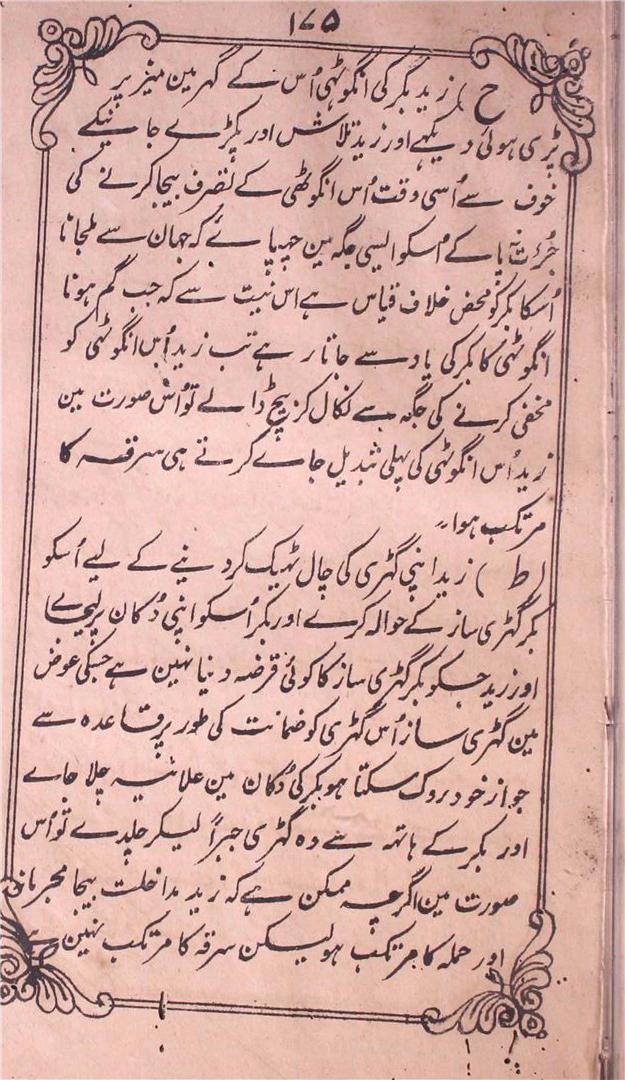 ۱۷۵
(ح) زید بکر کی انگوٹھی اُس کے گھر مین میز پر
پڑی ہوئی دیکھے اور زید تلاش اور پکڑے جانیکے
خوف سے اُسی وقت اُس انگوٹھی کے تصرف بیجا کرنے کی
جُرءت نہ پا کے اُسکو ایسی جگہ مین چھپائے کہ جہان سے ملجانا
اُسکا بکر کو محض خلاف قیاس ہے اس نیت سے کہ جب گم ہونا
انگوٹھی کا بکر کی یاد سے جاتا رہے تب زید اُس انگوٹھی کو
مخفی کرنے کی جگہ سے نکال کر بیچ ڈالے تو اُس صورت مین
زید اُس انگوٹھی کی پہلی تبدیل جاے کرتے ہی سرقہ کا
مرتکب ہوا۔
(ط) زید اپنی گھڑی کی چال ٹھیک کردینے کے لیے اُسکو
بکر گھڑی ساز کے حوالہ کرے اور بکر اُسکو اپنی دُکان پر لیجاے
اور زید جسکو بکر گھڑی ساز کا کوئی قرضہ دینا نہین ہے جسکی عوض
مین گھڑی ساز اُس گھڑی کو ضمانت کی طور پر قاعدہ سے
جواز خود روک سکتا ہو بکر کی دُکان مین علانیہ چلا جاے
اور بکر کے ہاتھ سے وہ گھڑی جبراً لیکر چلدے تو اُس
صورت مین اگرچہ ممکن ہے کہ زید مداخلت بیجا مجرمانہ
اور حملہ کا مرتکب ہو لیکن سرقہ کا مرتکب نہین ہے